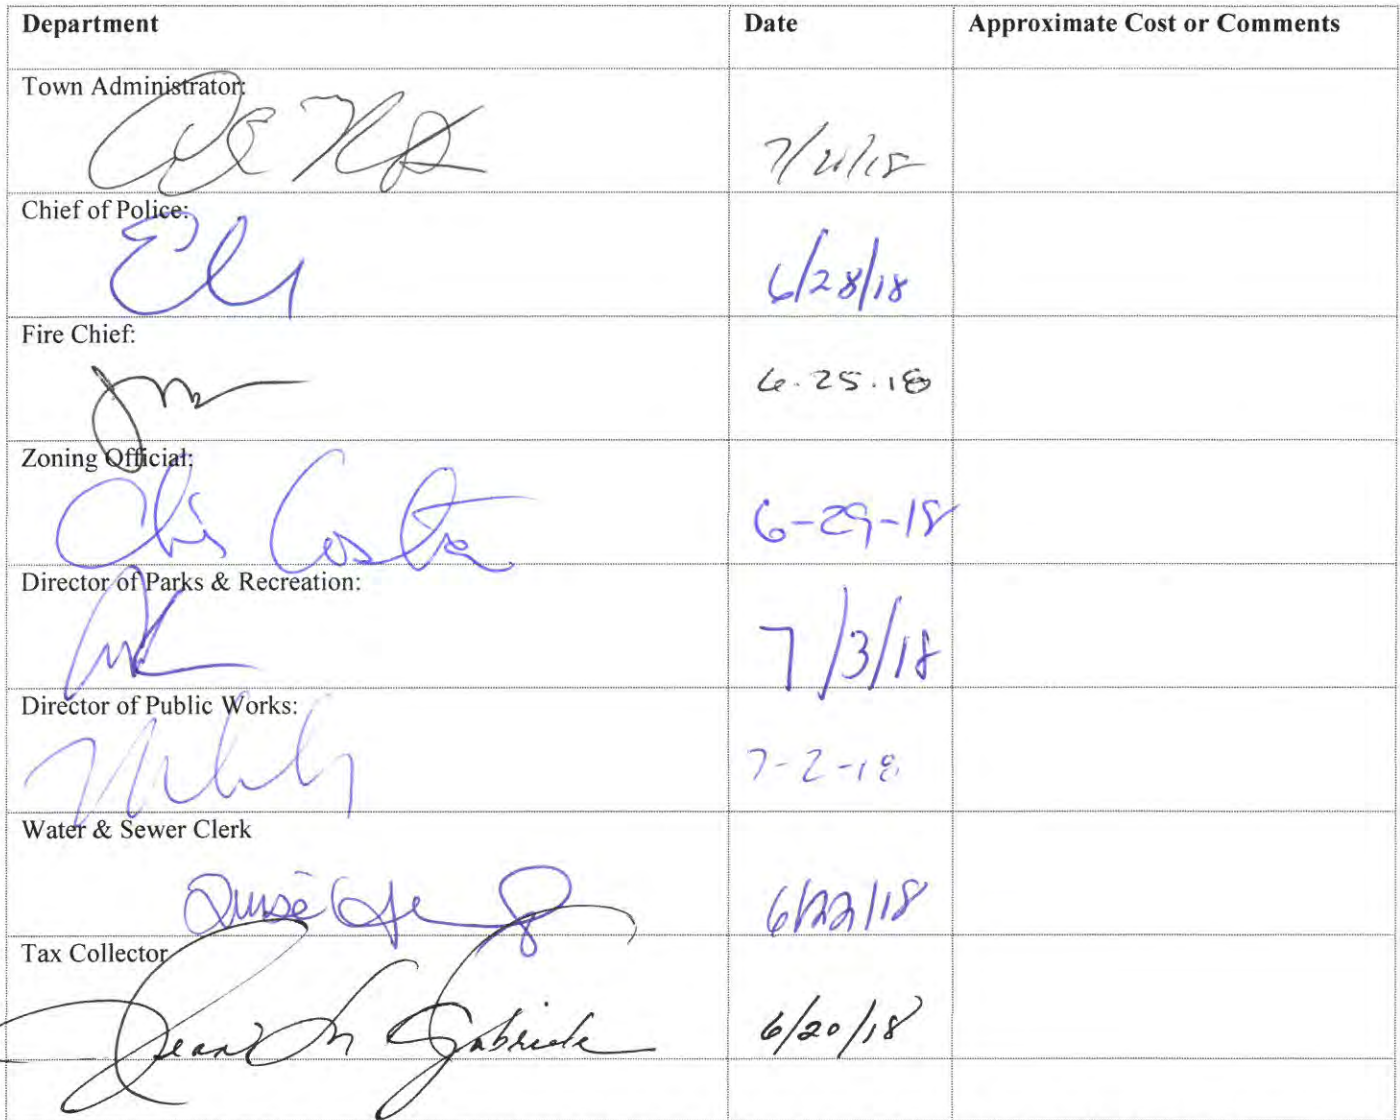 Department Date Approximate Cost or Comments
Town Administrator:
Chief of Police:
6/28/18
Fire Chief:
6.25.18
Zoning Official:
Chris Costa 6-29-18
Director of Parks & Recreation:
7/3/18
Director of Public Works:
7-2-18
Water & Sewer Clerk
6/22/18
Tax Collector
Jean M Gabriele 6/20/18